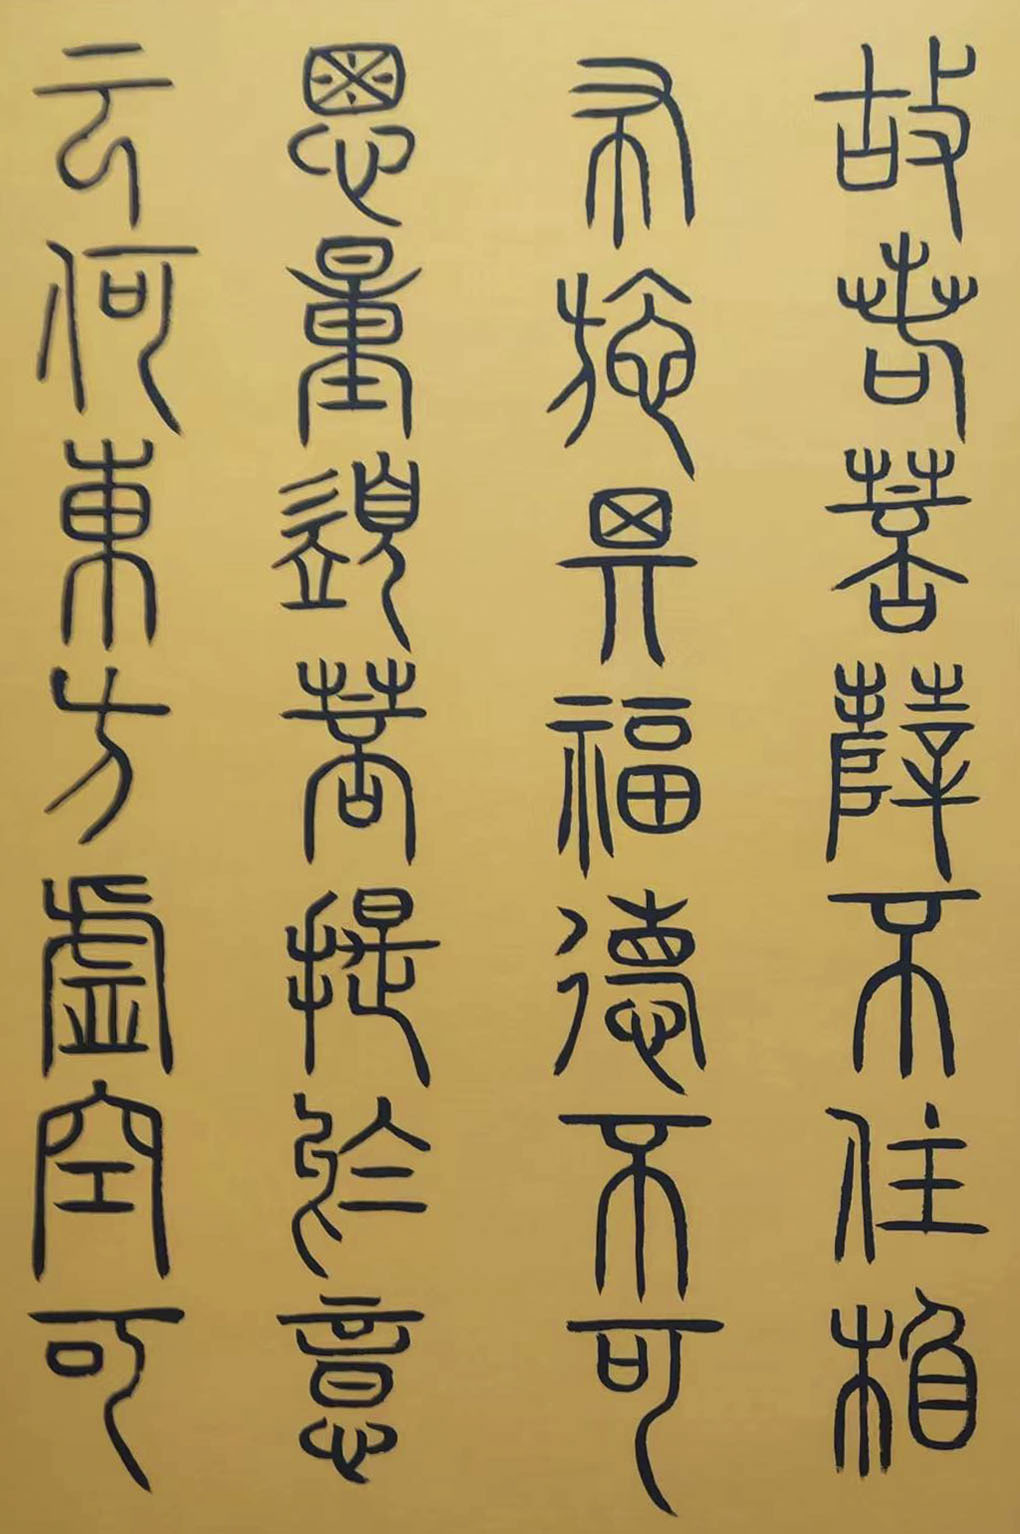 故若菩薩不住相
布施其福德不可
思量須菩提於意
云何東方虛空可